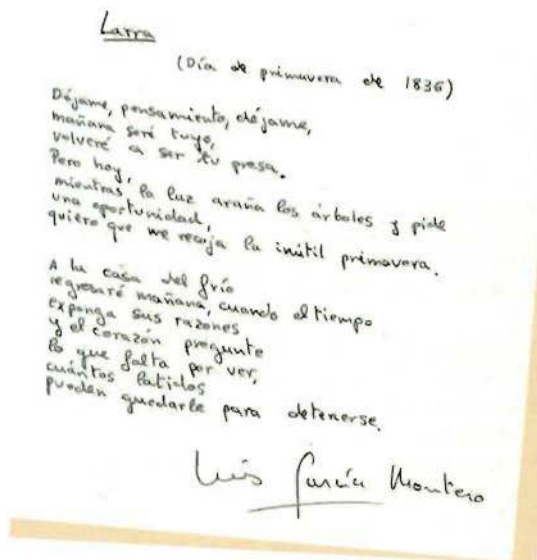 Larra
(Día de primavera de 1836)
Déjame, pensamiento, déjame,
mañana seré tuyo,
volveré a ser tu presa.
Pero hoy,
mientras la luz araña los árboles y pide
una oportunidad,
quiero que me recoja la inútil primavera.
A la casa del frío
regresaré mañana, cuando el tiempo
exponga sus razones
y el corazón pregunte
lo que falta por ver,
cuántos latidos
pueden quedarle para detenerse.
Luis García Montero